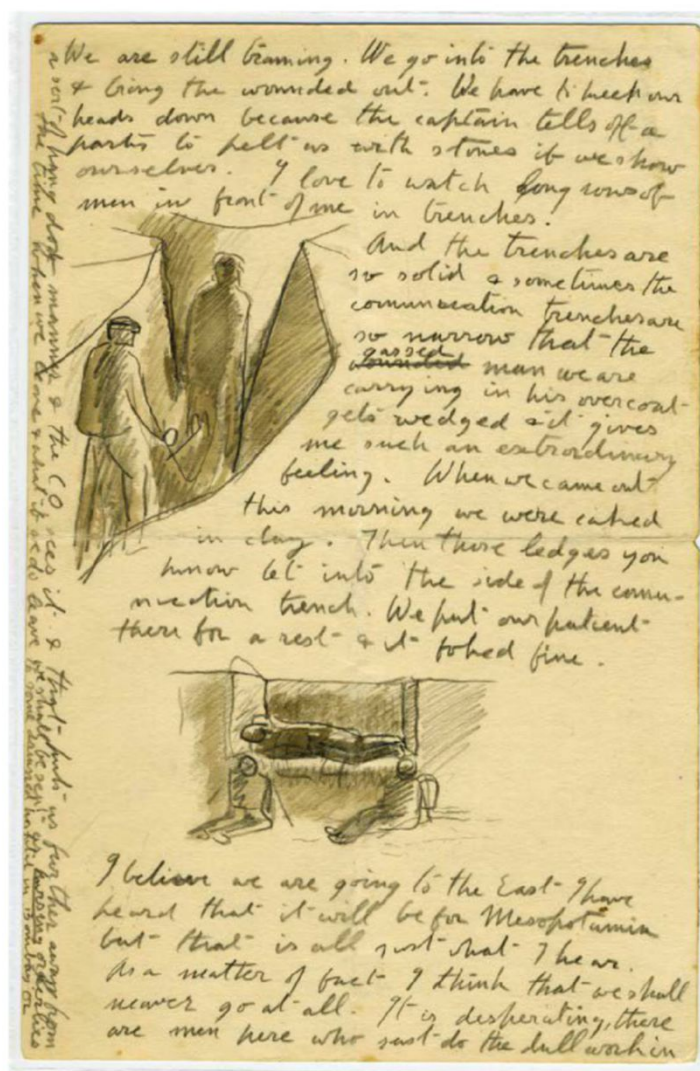 We are still training. We go into the trenches
& bring the wounded out. We have to keep our
heads down because the captain tells off a
party to pelt us with stones if we show
ourselves. I love to watch long rows of
men in front of me in trenches.
And the trenches are
so solid & sometimes the
comunication trenches are
so narrow that the
gassed
wounded man we are
carrying in his overcoat
gets wedged & it gives
me such an extrordinary
feeling. When we came out
this morning we were caked
in clay. Then those ledges you
know let into the side of the comu-
nication trench. We put our patient
there for a rest & it looked fine.
I believe we are going to the East I have
heard that it will be for Mesopotamia
but that is all just what I hear.
As a matter of fact I think that we shall
never go at all. It is desperating, there
are men here who just do the dull work in
a sort of hang dog manner & the C.O. sees it & that puts us further away from
the time when we leave & what if we do leave we shall be sent as nursing orderlies
to some hospital in Bombay or